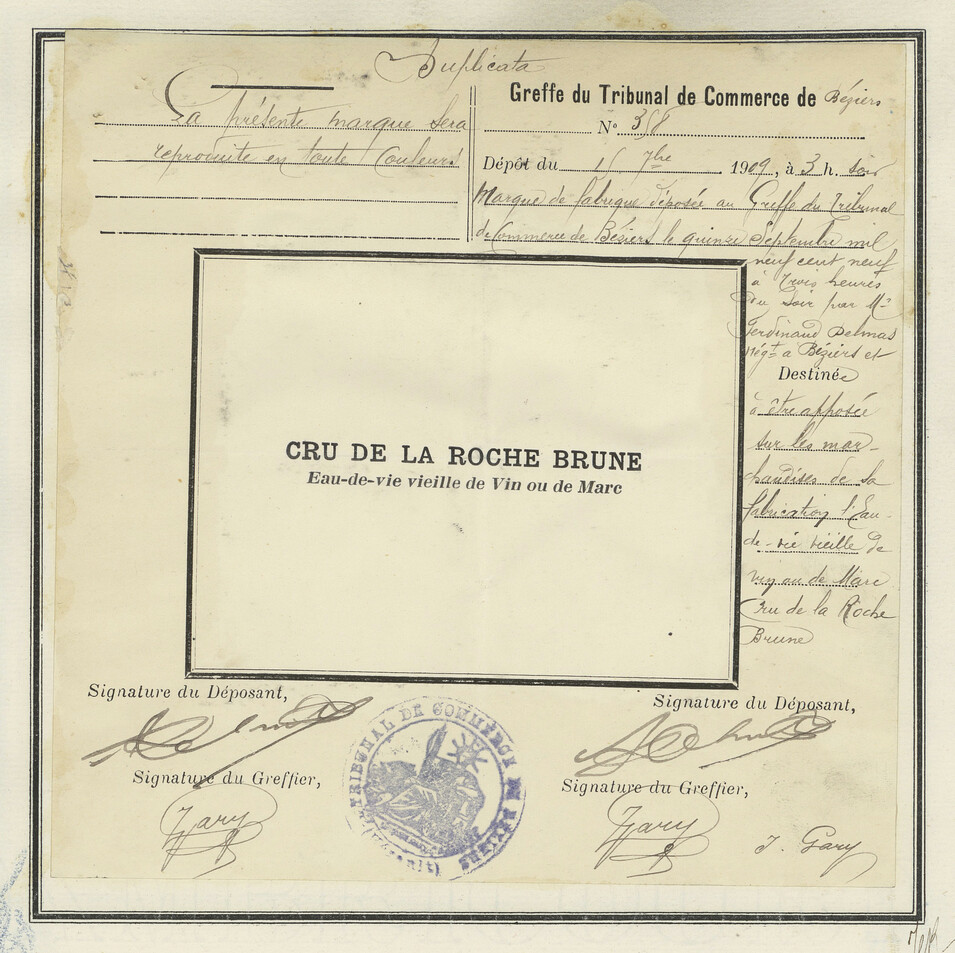 Duplicata
La présente marque sera
reproduite en toute Couleurs
Greffe du Tribunal de Commerce de Béziers
N° 358
Dépôt du 15 7bre 1909, à 3 h. soir
Marque de fabrique déposée au Greffe du Tribunal
de Commerce de Béziers le quinze Septembre mil
neuf cent neuf
à Trois heures
du soir par Mr
Ferdinand Delmas
négt à Béziers et
Destinée
à être apposée
sur les mar-
chandises de sa
fabrication l'Eau-
de-vie vieille de
vin ou de Marc
Cru de la Roche
Brune
CRU DE LA ROCHE BRUNE
Eau-de-vie vieille de Vin ou de Marc
Signature du Déposant,
Signature du Déposant,
Delmas
Delmas
Signature du Greffier,
Signature du Greffier,
Gary
Gary
J. Gary
TRIBUNAL DE COMMERCE DE BÉZIERS
(Hérault)